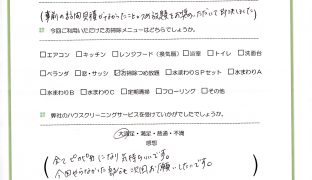 (事前の訪問見積がよかったことと、つめ放題をお奨めいただいて即決しました)
🎀 今回ご利用いただいたお掃除メニューはどちらでしょうか。
□エアコン □キッチン □レンジフード(換気扇) □浴室 □トイレ □洗面台
□ベランダ □窓・サッシ ☑お掃除つめ放題 □水まわりSPセット □水まわりA
□水まわりB □水まわりC □定期清掃 □フローリング □その他
🎀 弊社のハウスクリーニングサービスを受けていかがでしたでしょうか。
大満足・満足・普通・不満
感想
(全てピカピカになり気持のいいです。
今回やらなかった部分も次回お願いしたいです。)